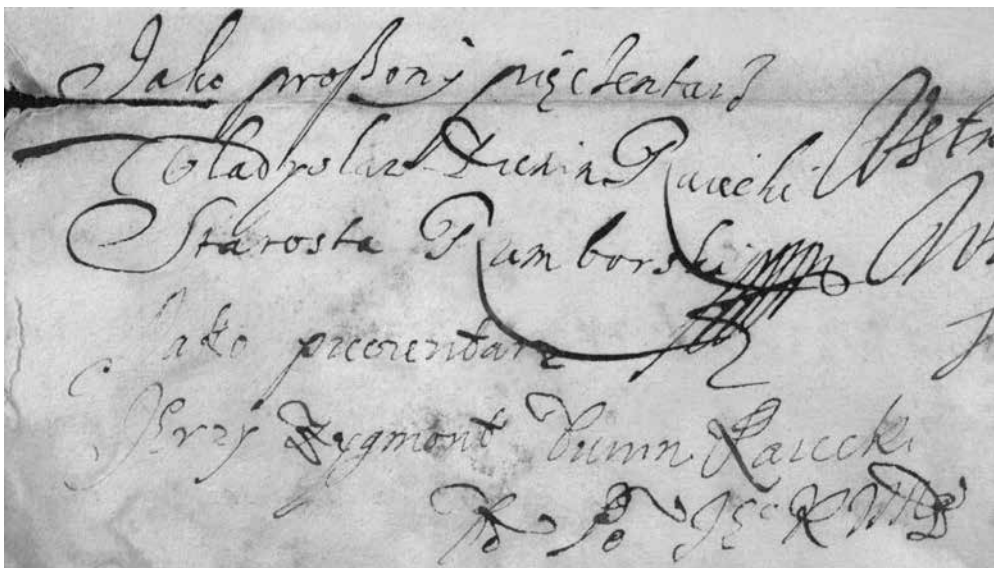 Jako proßony pięczentarz
Wladyslaw Dunin Raiecki
Starosta Rumborski
Jako pieczentarz
Jerzy Zygmont Dunin Raiecki